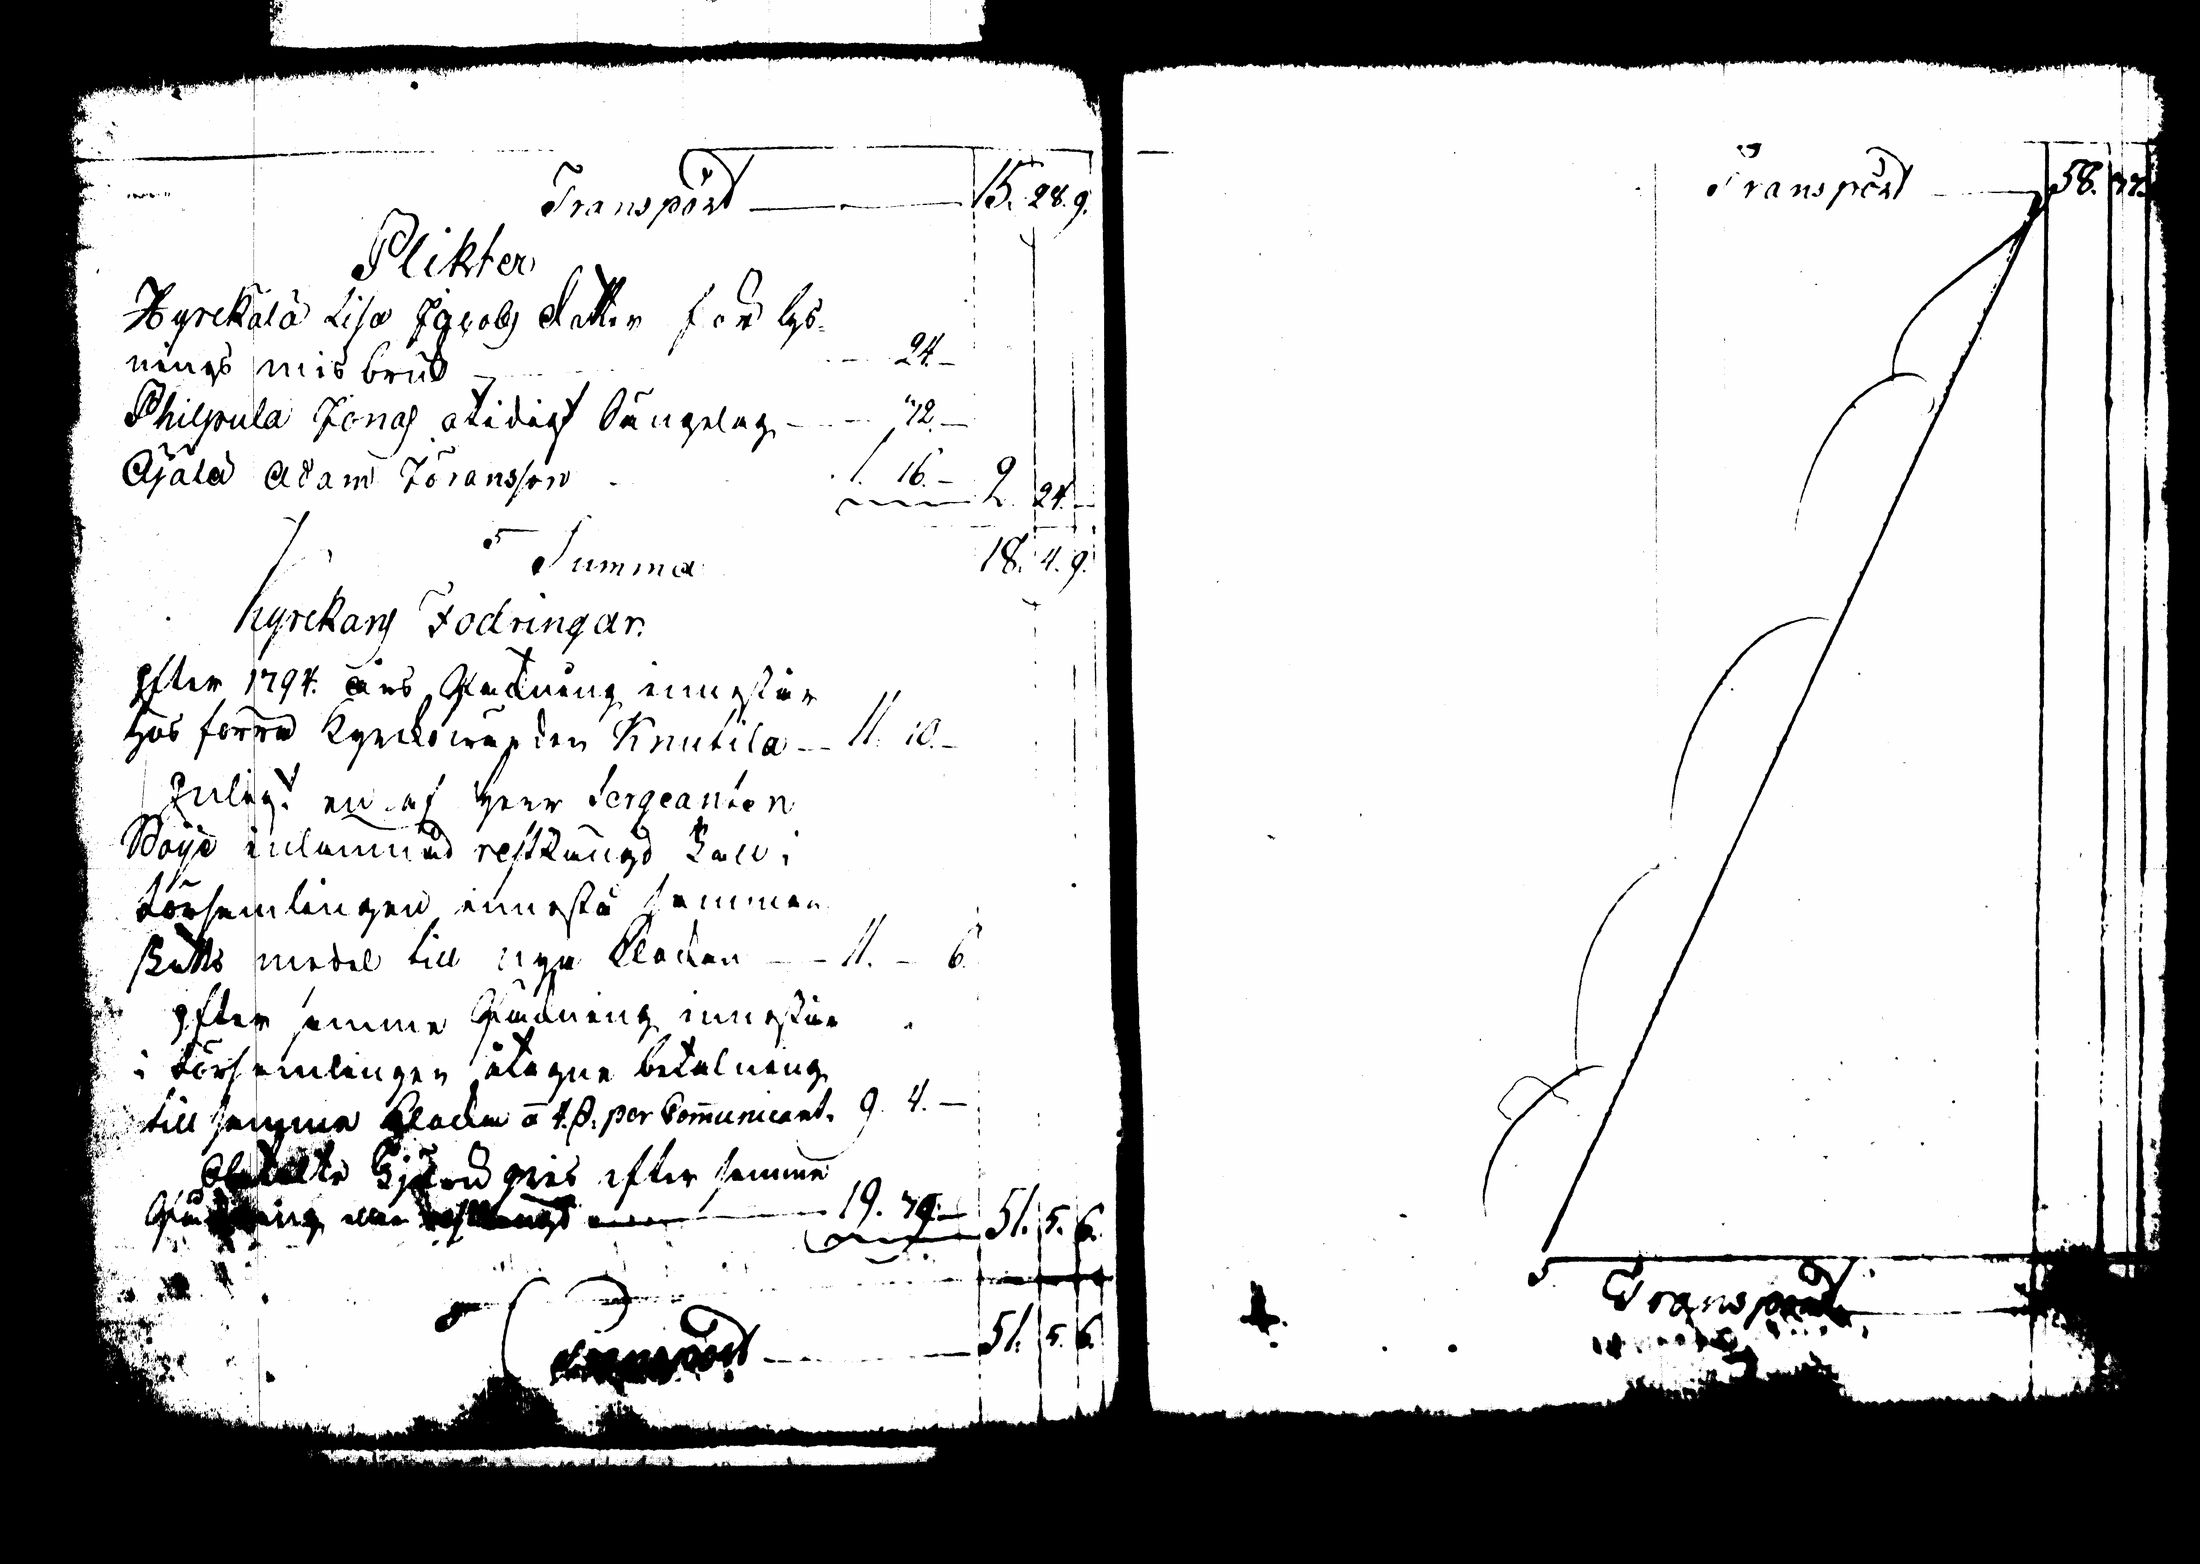 Transport 15. 28. 9.
Plikter
Hyrekälä Lisa Jacobs dotter för lys-
nings misbruk 24.–
Philpula Jonas otidigt Sängelag 12.–
Äjälä Adam Jöransson 1. 16.– 2. 24.–
Summa 18. 4. 9.
Kyrckans Fodringar.
Efter 1794. års Räkning innestår
hos förra Kyrckowärden Knutila 11. 10.–
Enligt en af Herr Sergeanten
Boije inlämnad restlängd
församlingen innestå samman
skotts medel till nya klockan 11. – 6.
Efter samma Räkning innestår
i församlingen åtagne betalning
till samma klocka a 4. s. per Communicant. 9. 4.–
efter samma
Räkning 19. 51. 5. 6.
Transport 51. 5. 6.
Transport 58.
Transport